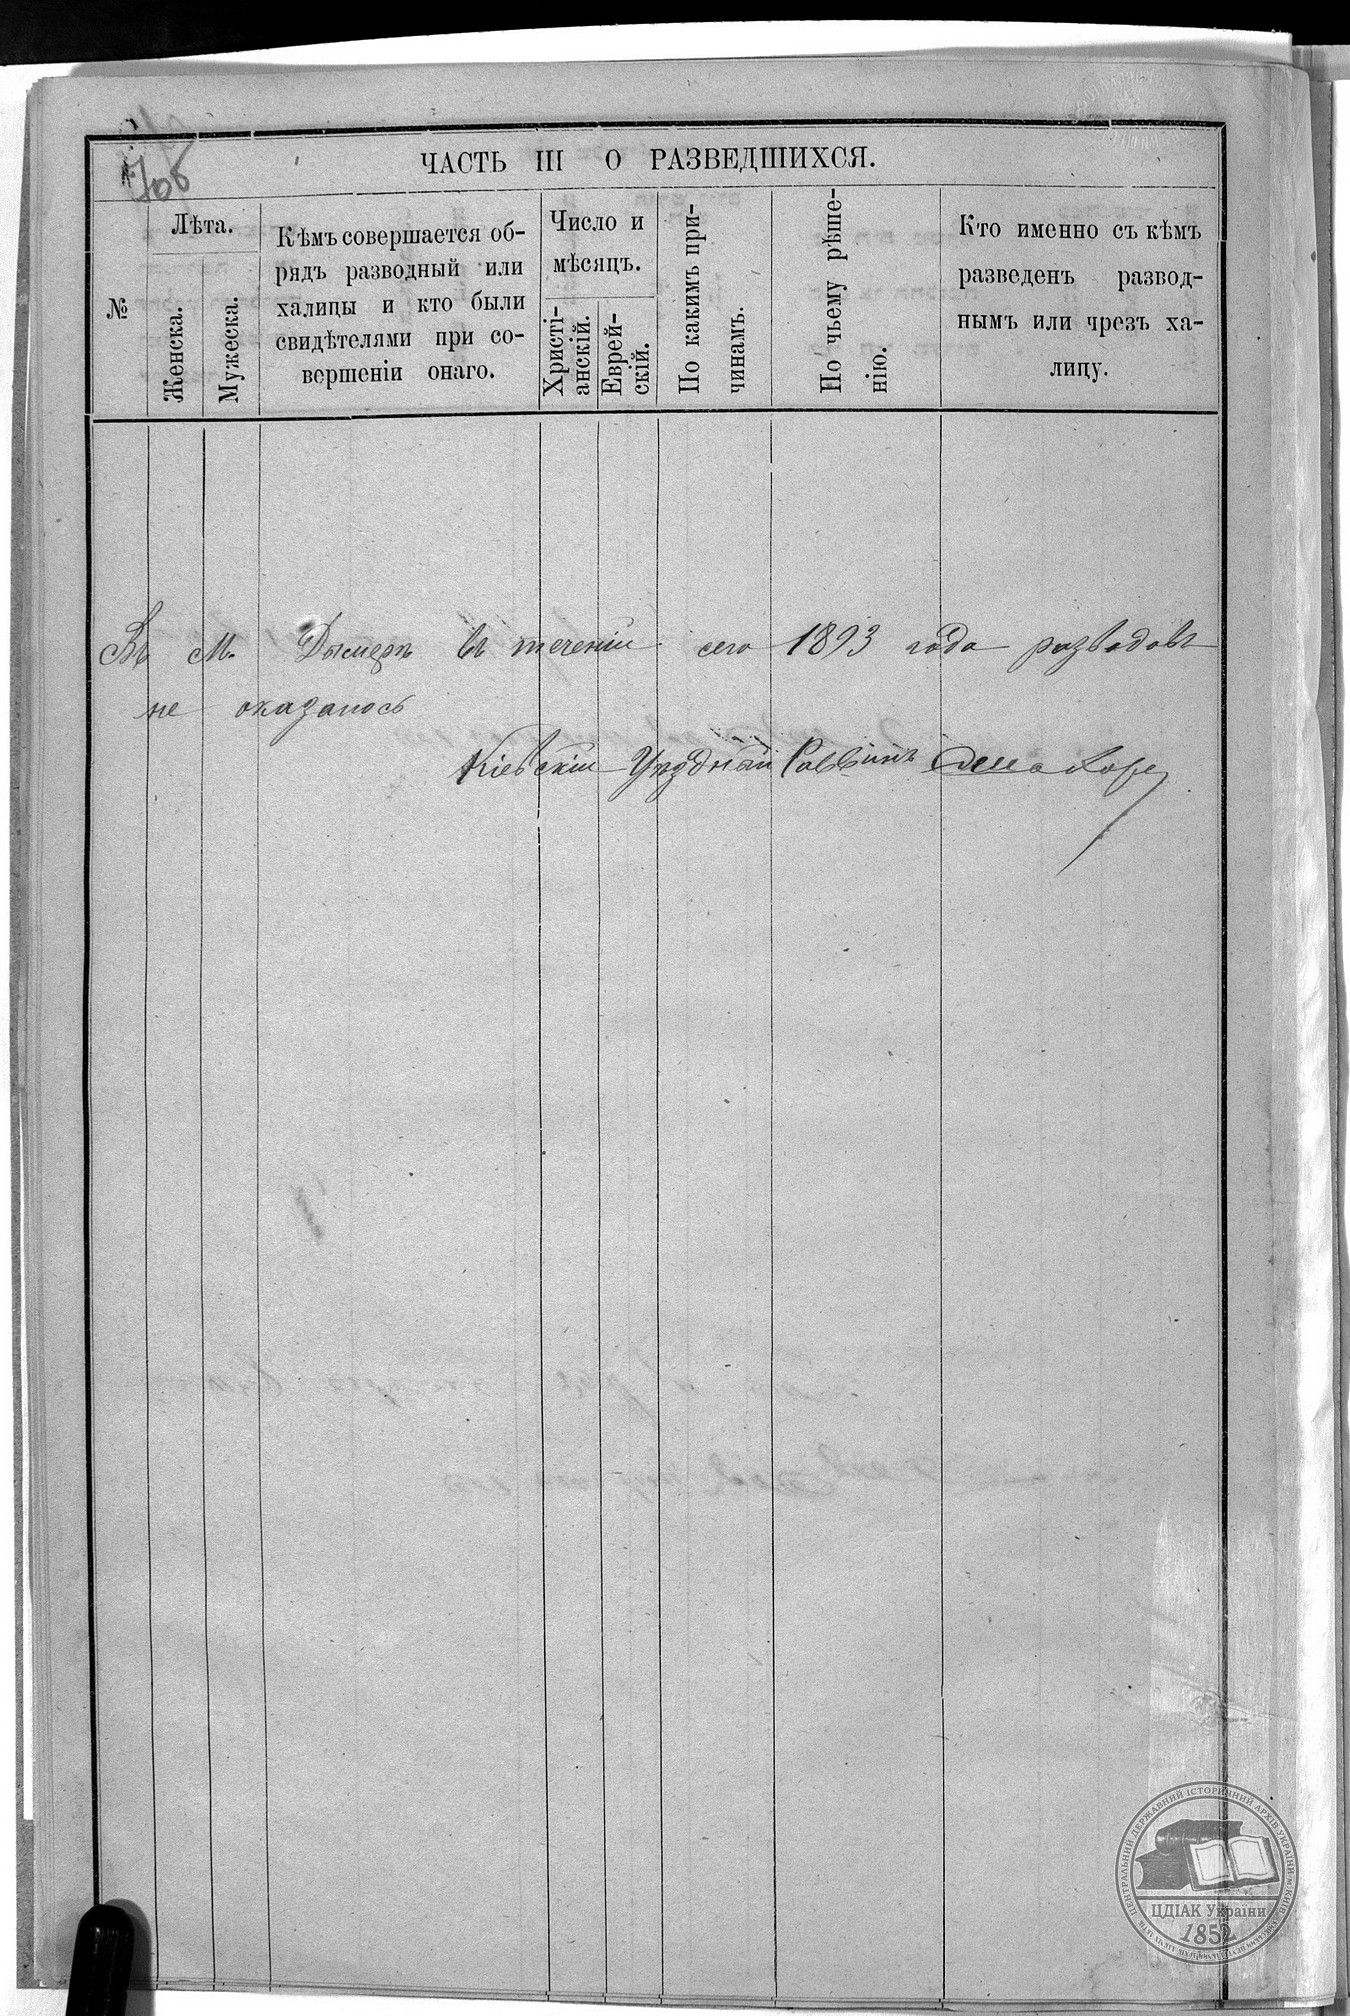 708
ЧАСТЬ III О РАЗВЕДШИХСЯ.
№
Лѣта.
Женска.
Мужеска.
Кѣмъ совершается об-
рядъ разводный или
халицы и кто были
свидѣтелями при со-
вершеніи онаго.
Число и
мѣсяцъ.
Христі-
анскій.
Еврей-
скій.
По какимъ при-
чинамъ.
По чьему рѣше-
нію.
Кто именно съ кѣмъ
разведенъ развод-
нымъ или чрезъ ха-
лицу.
Въ М. Дымерѣ въ теченіи сего 1893 года разводовъ
не оказалось
Кіевскій Уѣздный Раввинъ
ЦЕНТРАЛЬНИЙ ДЕРЖАВНИЙ ІСТОРИЧНИЙ АРХІВ УКРАЇНИ м. КИЇВ
ЦДІАК України
1852